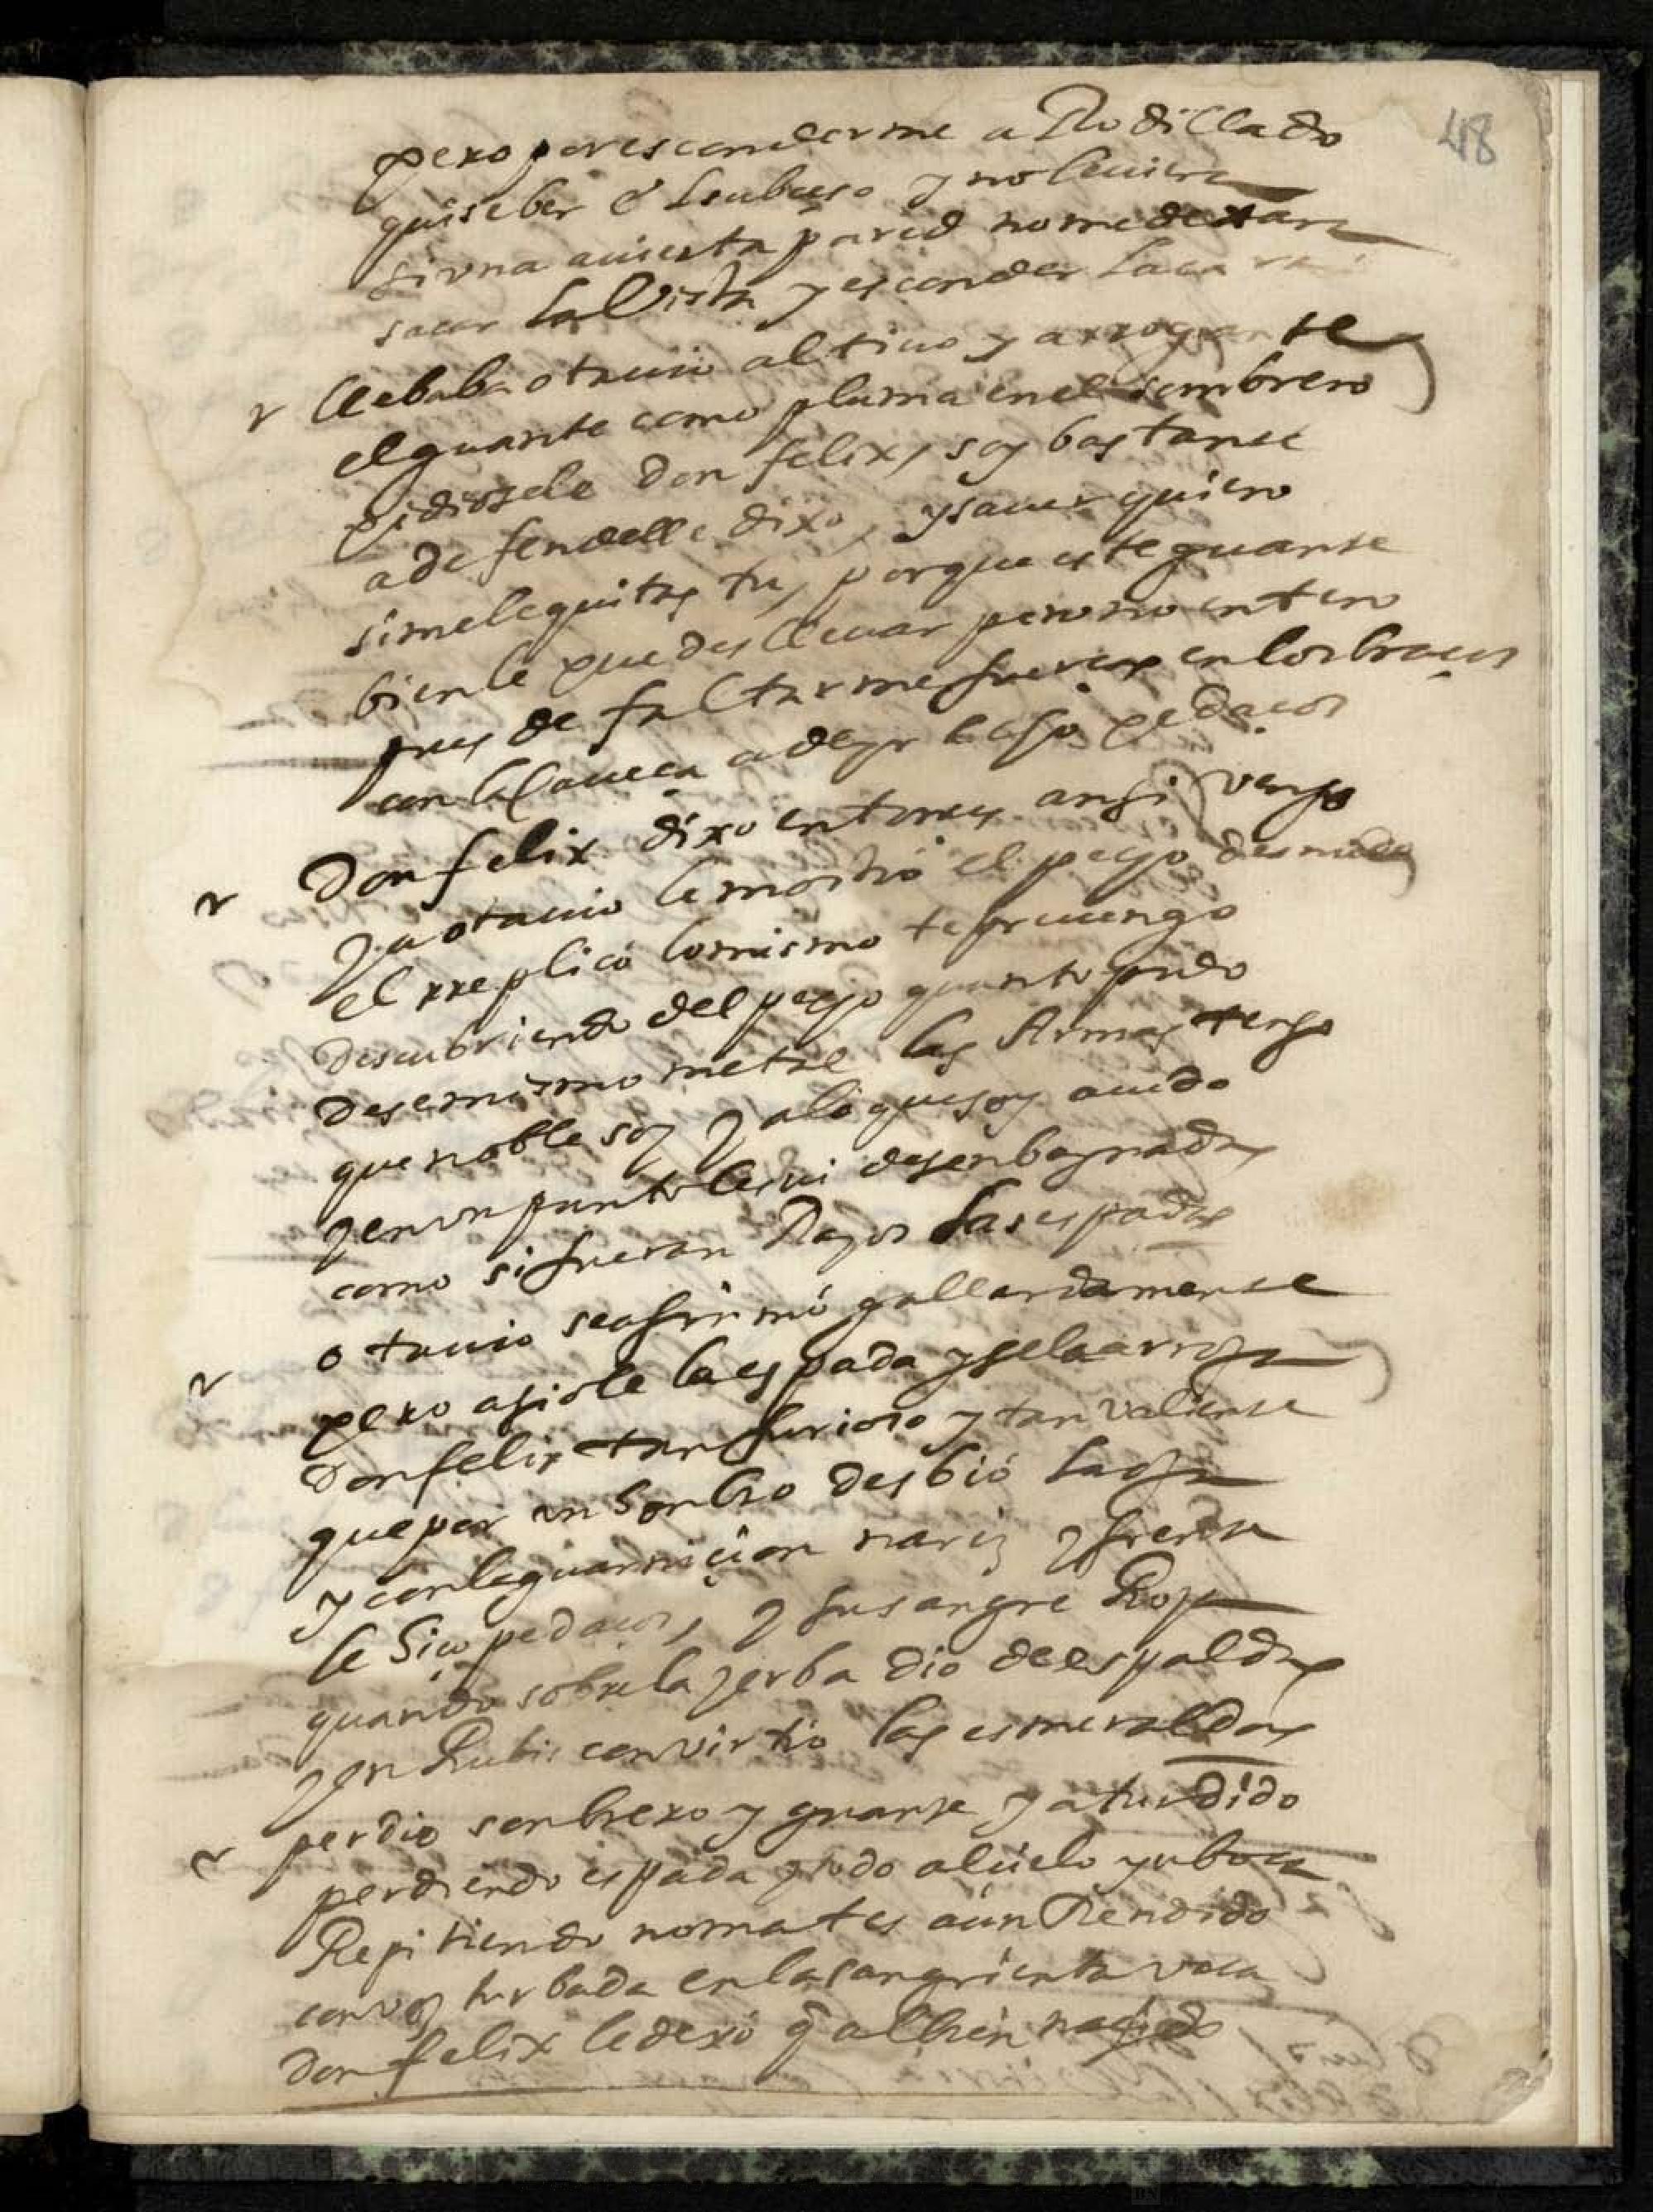 48
pero por esconderme aRodillado
quise ber el subceso y no le uiera
si vna auierta pared no me dexara
sacar la Vista y esconder la cara
llebaba otauio altiuo y arrogante
el guante como pluma en el sombrero
pidiosele Don felix, soy bastante
a defendelle dixo, y sauer quiero
si me le quitas tu, porque este guante
bien le puedes lleuar pero no entero
pues de faltarme fuerças en los braços
con la caueça a de yr hecho pedaços
Don felix dixo entonces ansi vengo
y a otauio le mostro el pecho desnudo
el rreplicó lo mismo te preuengo
Descubriendo del pecho quanto pudo
Dese mismo metal las Armas tengo
que noble soy y a lo que soy acudo
y en vn punto les vi desenbaynadas
como si fueran Rayos las espadas
otauio se afirmó gallardamente
pero asiole la espada y se la arroja
Don felix tan furioso y tan valiente
que por un honbro desbió la oja
y con la guarniçion nariz y frente
le hiço pedaços, y su sangre Roja
quando sobre la yerba dio de espaldas
y en Rubis convirtio las esmeraldas
perdio sonbrero y guante y aturdido
perdiendo espada pudo al cielo inboca
Repitiendo no mates aún Rendido
con voz turbada en la sangrienta voca
Don felix le dexó q̃ al bien naçido